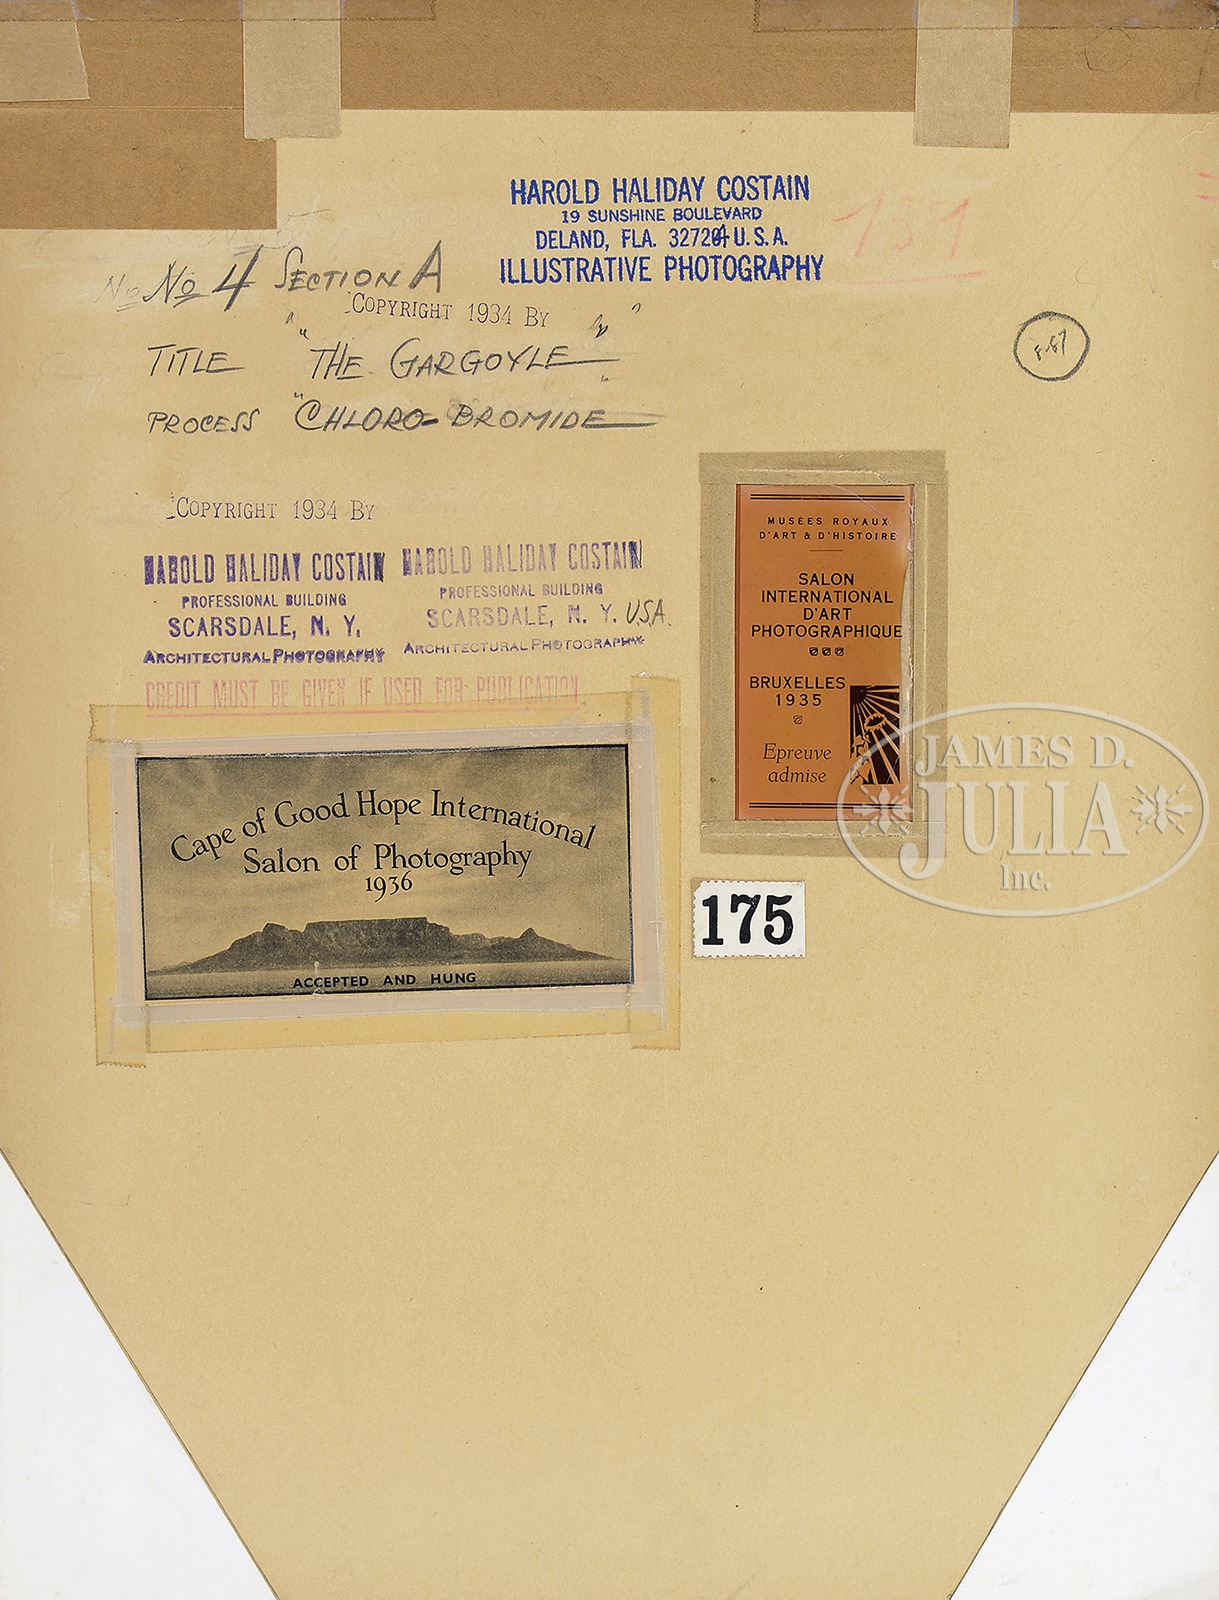 HAROLD HALIDAY COSTAIN
19 SUNSHINE BOULEVARD
DELAND, FLA. 32724 U.S.A.
ILLUSTRATIVE PHOTOGRAPHY
151
No No 4 SECTION A
COPYRIGHT 1934 BY
TITLE "THE GARGOYLE"
PROCESS "CHLORO-BROMIDE"
COPYRIGHT 1934 BY
HAROLD HALIDAY COSTAIN
PROFESSIONAL BUILDING
SCARSDALE, N. Y.
ARCHITECTURAL PHOTOGRAPHY
HAROLD HALIDAY COSTAIN
PROFESSIONAL BUILDING
SCARSDALE, N. Y. U.S.A.
ARCHITECTURAL PHOTOGRAPHY
CREDIT MUST BE GIVEN IF USED FOR PUBLICATION.
MUSÉES ROYAUX
D'ART & D'HISTOIRE
SALON
INTERNATIONAL
D'ART
PHOTOGRAPHIQUE
BRUXELLES
1935
Epreuve
admise
Cape of Good Hope International
Salon of Photography
1936
ACCEPTED AND HUNG
175
JAMES D.
JULIA
Inc.